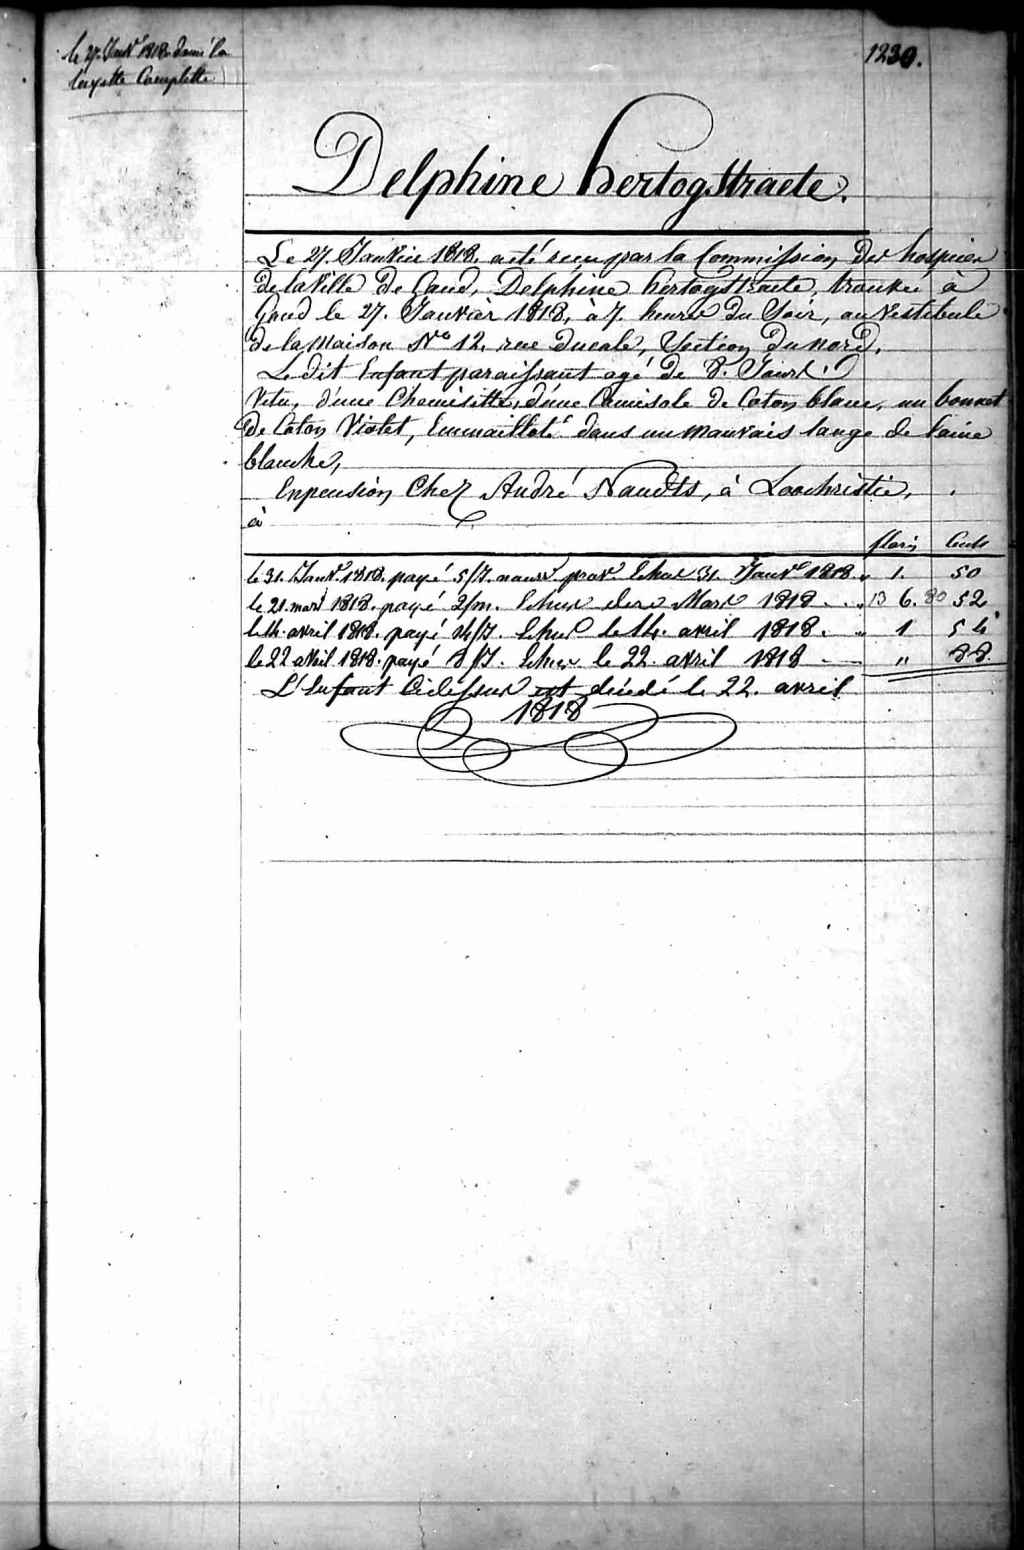 le 27. Janv.r 1818. donné la
layette Complette
1230.
Delphine hertogstraete.
Le 27. Janvier 1818, a été reçu par la Commission des hospices
de la Ville de Gand, Delphine hertogstraete, trouvée à
Gand le 27. Janvier 1818, à 7. heures du Soir, au vestibule
de la Maison N.o 12. rue ducale, Section du nord.
Le dit Enfant paraissant agé de 8. Jours.
Vetu, d'une Chemisette, d'une Camisole de Coton blanc, un bonnet
de Coton Violet, Emmailloté dans un mauvais lange de laine
blanche,
Enpension Chez André Naudts, à Loochristie,
à
florins Cents
le 31. Janv.r 1818. payé 5/J. nourr. prov. Echue 31. Janv.r 1818. „ 1. 50
le 21. mars 1818. payé 2/m. Echus Mars 1818 . . „ 13 6. 80 52
le 14. avril 1818. payé 14/J. Echus le 14. avril 1818. „ 1 54
le 22 avril 1818. payé 8/J. Echus le 22. avril 1818 — „ 88
L'Enfant Cidessus est décédé le 22. avril
1818